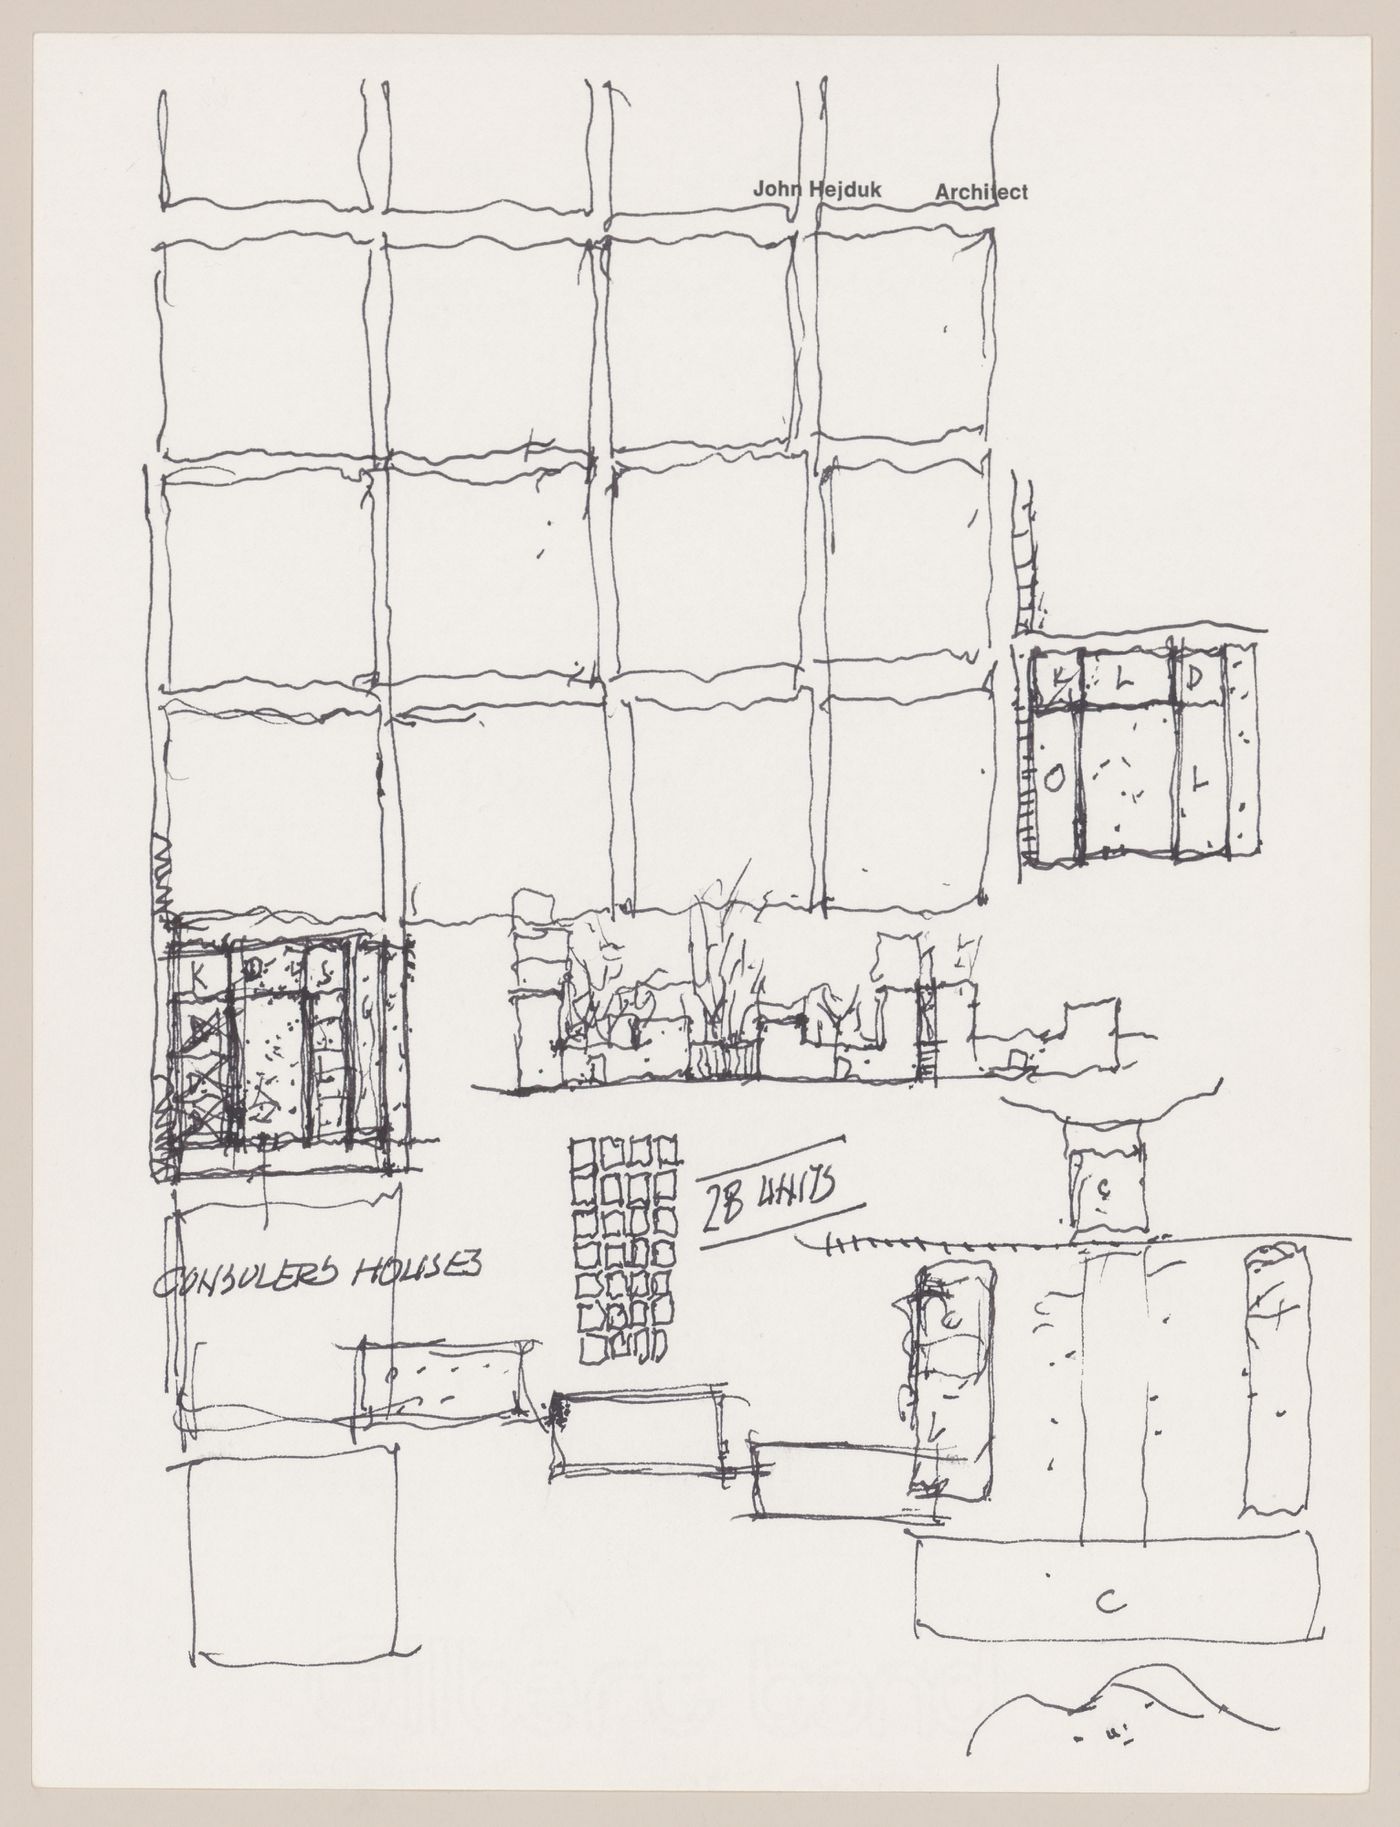 John Hejduk Architect
K L D
O L
K D L S
C
28 UNITS
CONSULERS HOUSES
C
L
C